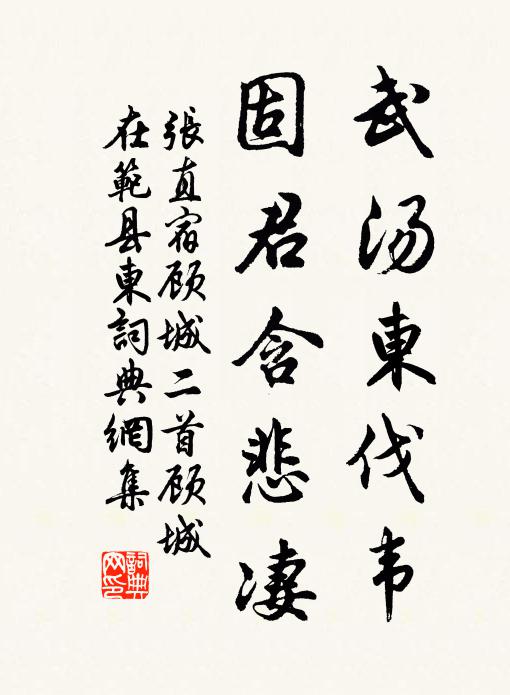 武汤東伐韦
固君含悲凄
張直宿顾城二首顾城
在範县東詞典網集
詞典網印